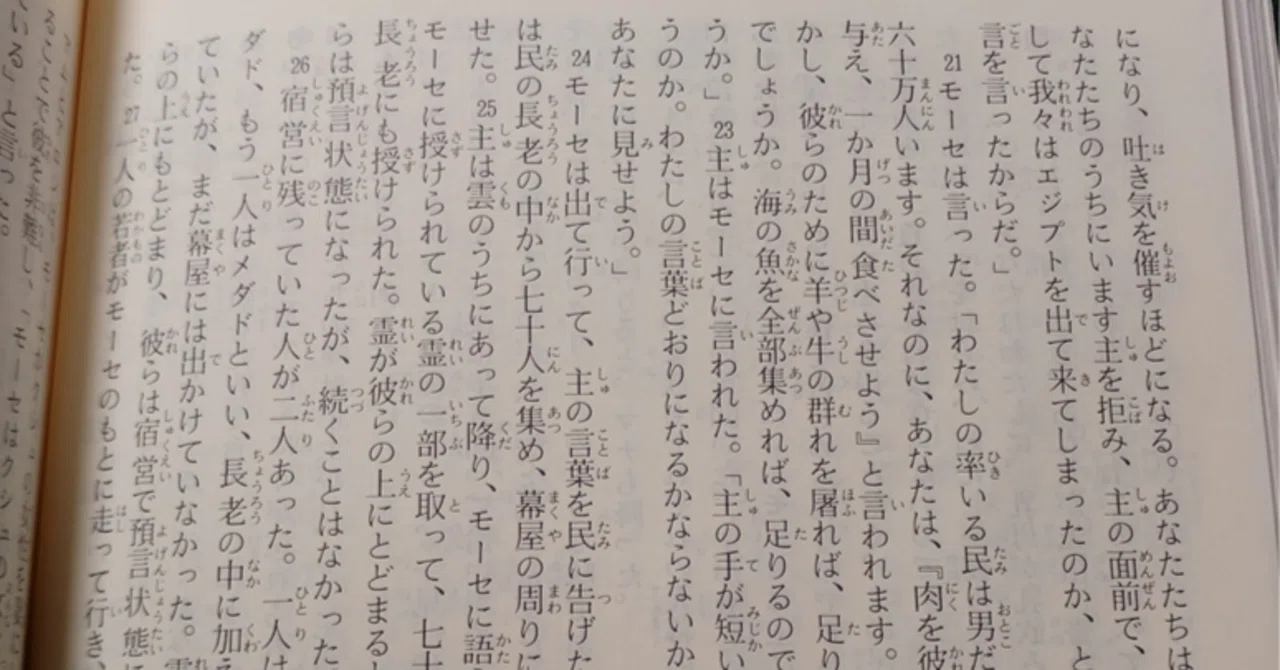 になり、吐き気を催すほどになる。あなたたちは
なたたちのうちにいます主を拒み、主の面前で、
して我々はエジプトを出て来てしまったのか、と
言を言ったからだ。」
21モーセは言った。「わたしの率いる民は男だ
六十万人います。それなのに、あなたは、『肉を彼
与え、一か月の間食べさせよう』と言われます。
かし、彼らのために羊や牛の群れを屠れば、足り
でしょうか。海の魚を全部集めれば、足りるので
うか。」23主はモーセに言われた。「主の手が短い
うのか。わたしの言葉どおりになるかならないか
あなたに見せよう。」
24モーセは出て行って、主の言葉を民に告げた
は民の長老の中から七十人を集め、幕屋の周りに
せた。25主は雲のうちにあって降り、モーセに語
モーセに授けられている霊の一部を取って、七十
長老にも授けられた。霊が彼らの上にとどまると
らは預言状態になったが、続くことはなかった
26宿営に残っていた人が二人あった。一人は
ダド、もう一人はメダドといい、長老の中に加え
ていたが、まだ幕屋には出かけていなかった。霊
らの上にもとどまり、彼らは宿営で預言状態に
た。27一人の若者がモーセのもとに走って行き、
ている」と言った。